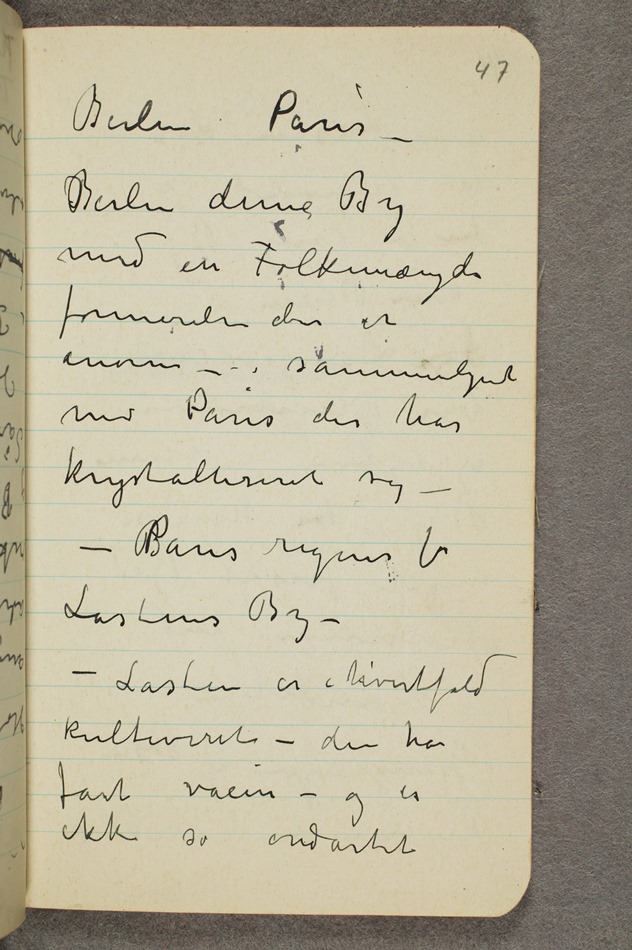 47
Berlin Paris –
Berlin denne By
med en Folkemængde
formerelse der er
enorm – . . sammenlignet
med Paris der har
krystalliseret sig –
– Paris regnes for
Lastens By –
– Lasten er i hvertfald
kultiveret – den har
fast – og er
ikke så ondartet